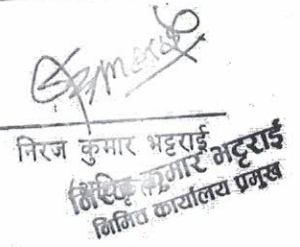 निरज कुमार भट्टराई
कुमार भट्टराई
निमित्त कार्यालय प्रमुख